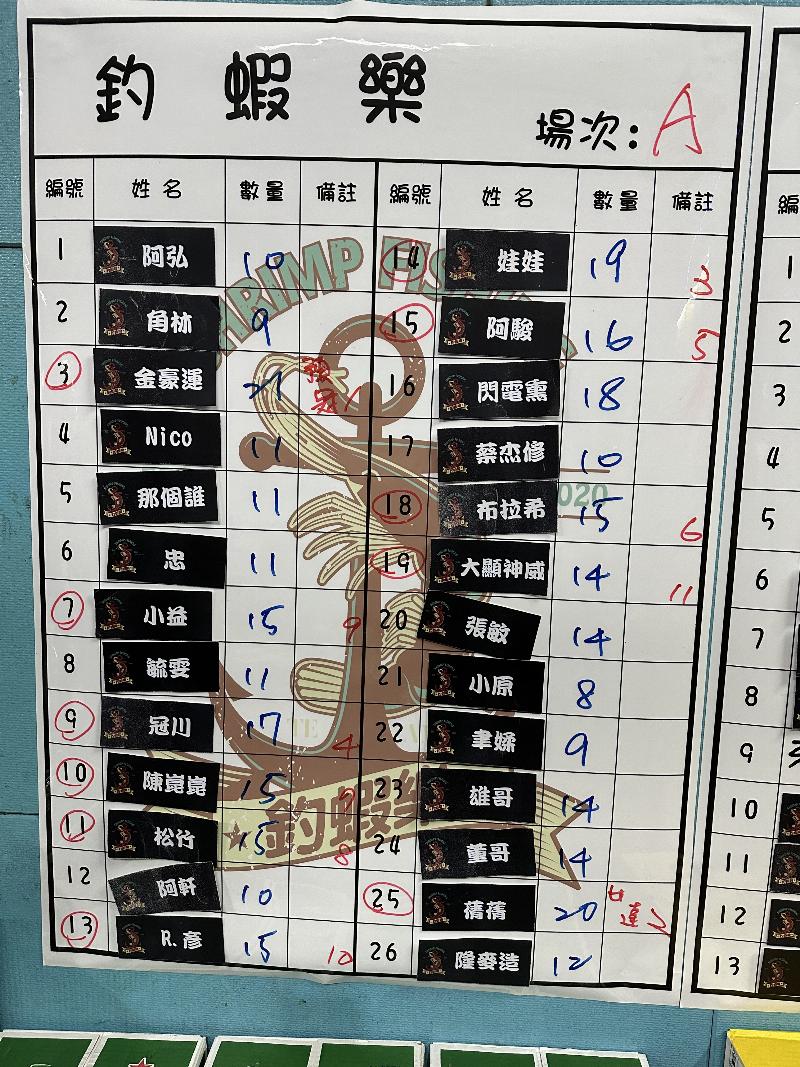 釣蝦樂
場次: A
編號 姓名 數量 備註 編號 姓名 數量 備註
1 阿弘 10 14 娃娃 19 3
2 角林 9 15 阿駿 16 5
3 金豪運 21 預冠 16 閃電熏 18
4 Nico 11 17 蔡杰修 10
5 那個誰 11 18 布拉希 15 6
6 忠 11 19 大顯神威 14 11
7 小益 15 9 20 張敏 14
8 毓雯 11 21 小原 8
9 冠川 17 4 22 聿媃 9
10 陳崑崑 15 7 23 雄哥 14
11 松行 15 8 24 董哥 14
12 阿軒 10 25 蒨蒨 20
13 R.彥 15 10 26 隆麥造 12
SHRIMP FIS
2020
釣蝦樂
編
1
2
3
4
5
6
7
8
9
10
11
12
13